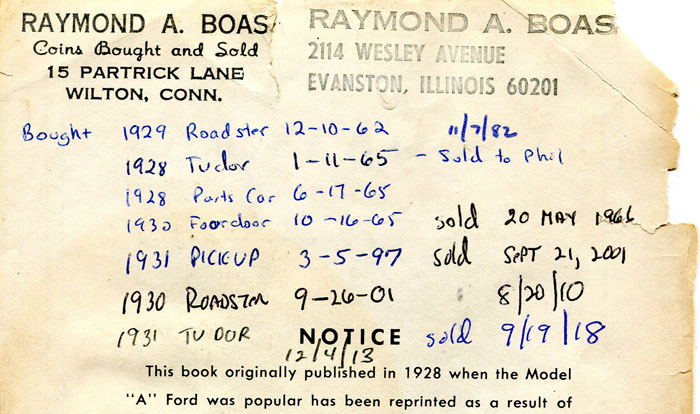 RAYMOND A. BOAS
Coins Bought and Sold
15 PARTRICK LANE
WILTON, CONN.
RAYMOND A. BOAS
2114 WESLEY AVENUE
EVANSTON, ILLINOIS 60201
Bought 1929 Roadster 12-10-62 11/7/82
1928 Tudor 1-11-65 - Sold to Phil
1928 Parts Car 6-17-65
1930 Foordoor 10-16-65 sold 20 MAY 1966
1931 PICKUP 3-5-97 sold SEPT 21, 2001
1930 ROADSTER 9-26-01 8/20/10
1931 TUDOR 12/4/13 sold 9/19/18
NOTICE
This book originally published in 1928 when the Model
"A" Ford was popular has been reprinted as a result of